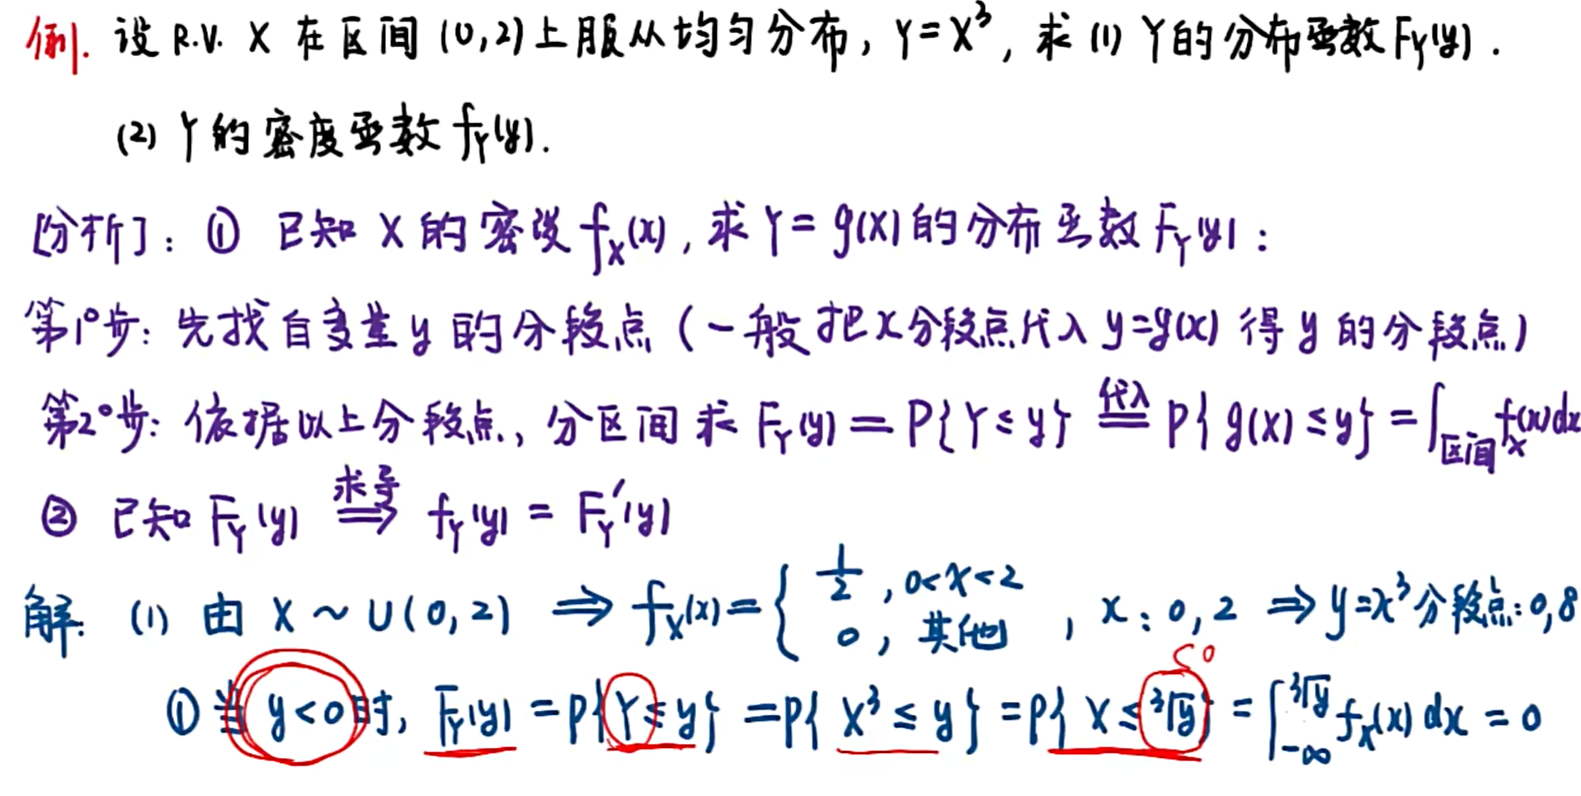 例. 设 R.V. X 在区间 (0,2) 上服从均匀分布, Y=X³, 求 (1) Y的分布函数 F_Y(y).
(2) Y的密度函数 f_Y(y).
[分析]: ① 已知 X 的密度 f_X(x), 求 Y = g(X) 的分布函数 F_Y(y):
第1°步: 先找自变量 y 的分段点 (一般把 x 分段点代入 y=g(x) 得 y 的分段点)
第2°步: 依据以上分段点, 分区间求 F_Y(y) = P{Y ≤ y} 代入= P{g(X) ≤ y} = ∫_区间 f_X(x)dx
② 已知 F_Y(y) 求导⟹ f_Y(y) = F_Y′(y)
解: (1) 由 X ~ U(0,2) ⟹ f_X(x) = { 1/2, 0<x<2 0, 其他 , x: 0, 2 ⟹ y=x³ 分段点: 0,8
<0
① 当 y<0 时, F_Y(y) = P{Y ≤ y} = P{X³ ≤ y} = P{X ≤ ³√y} = ∫_{-∞}^{³√y} f_X(x) dx = 0